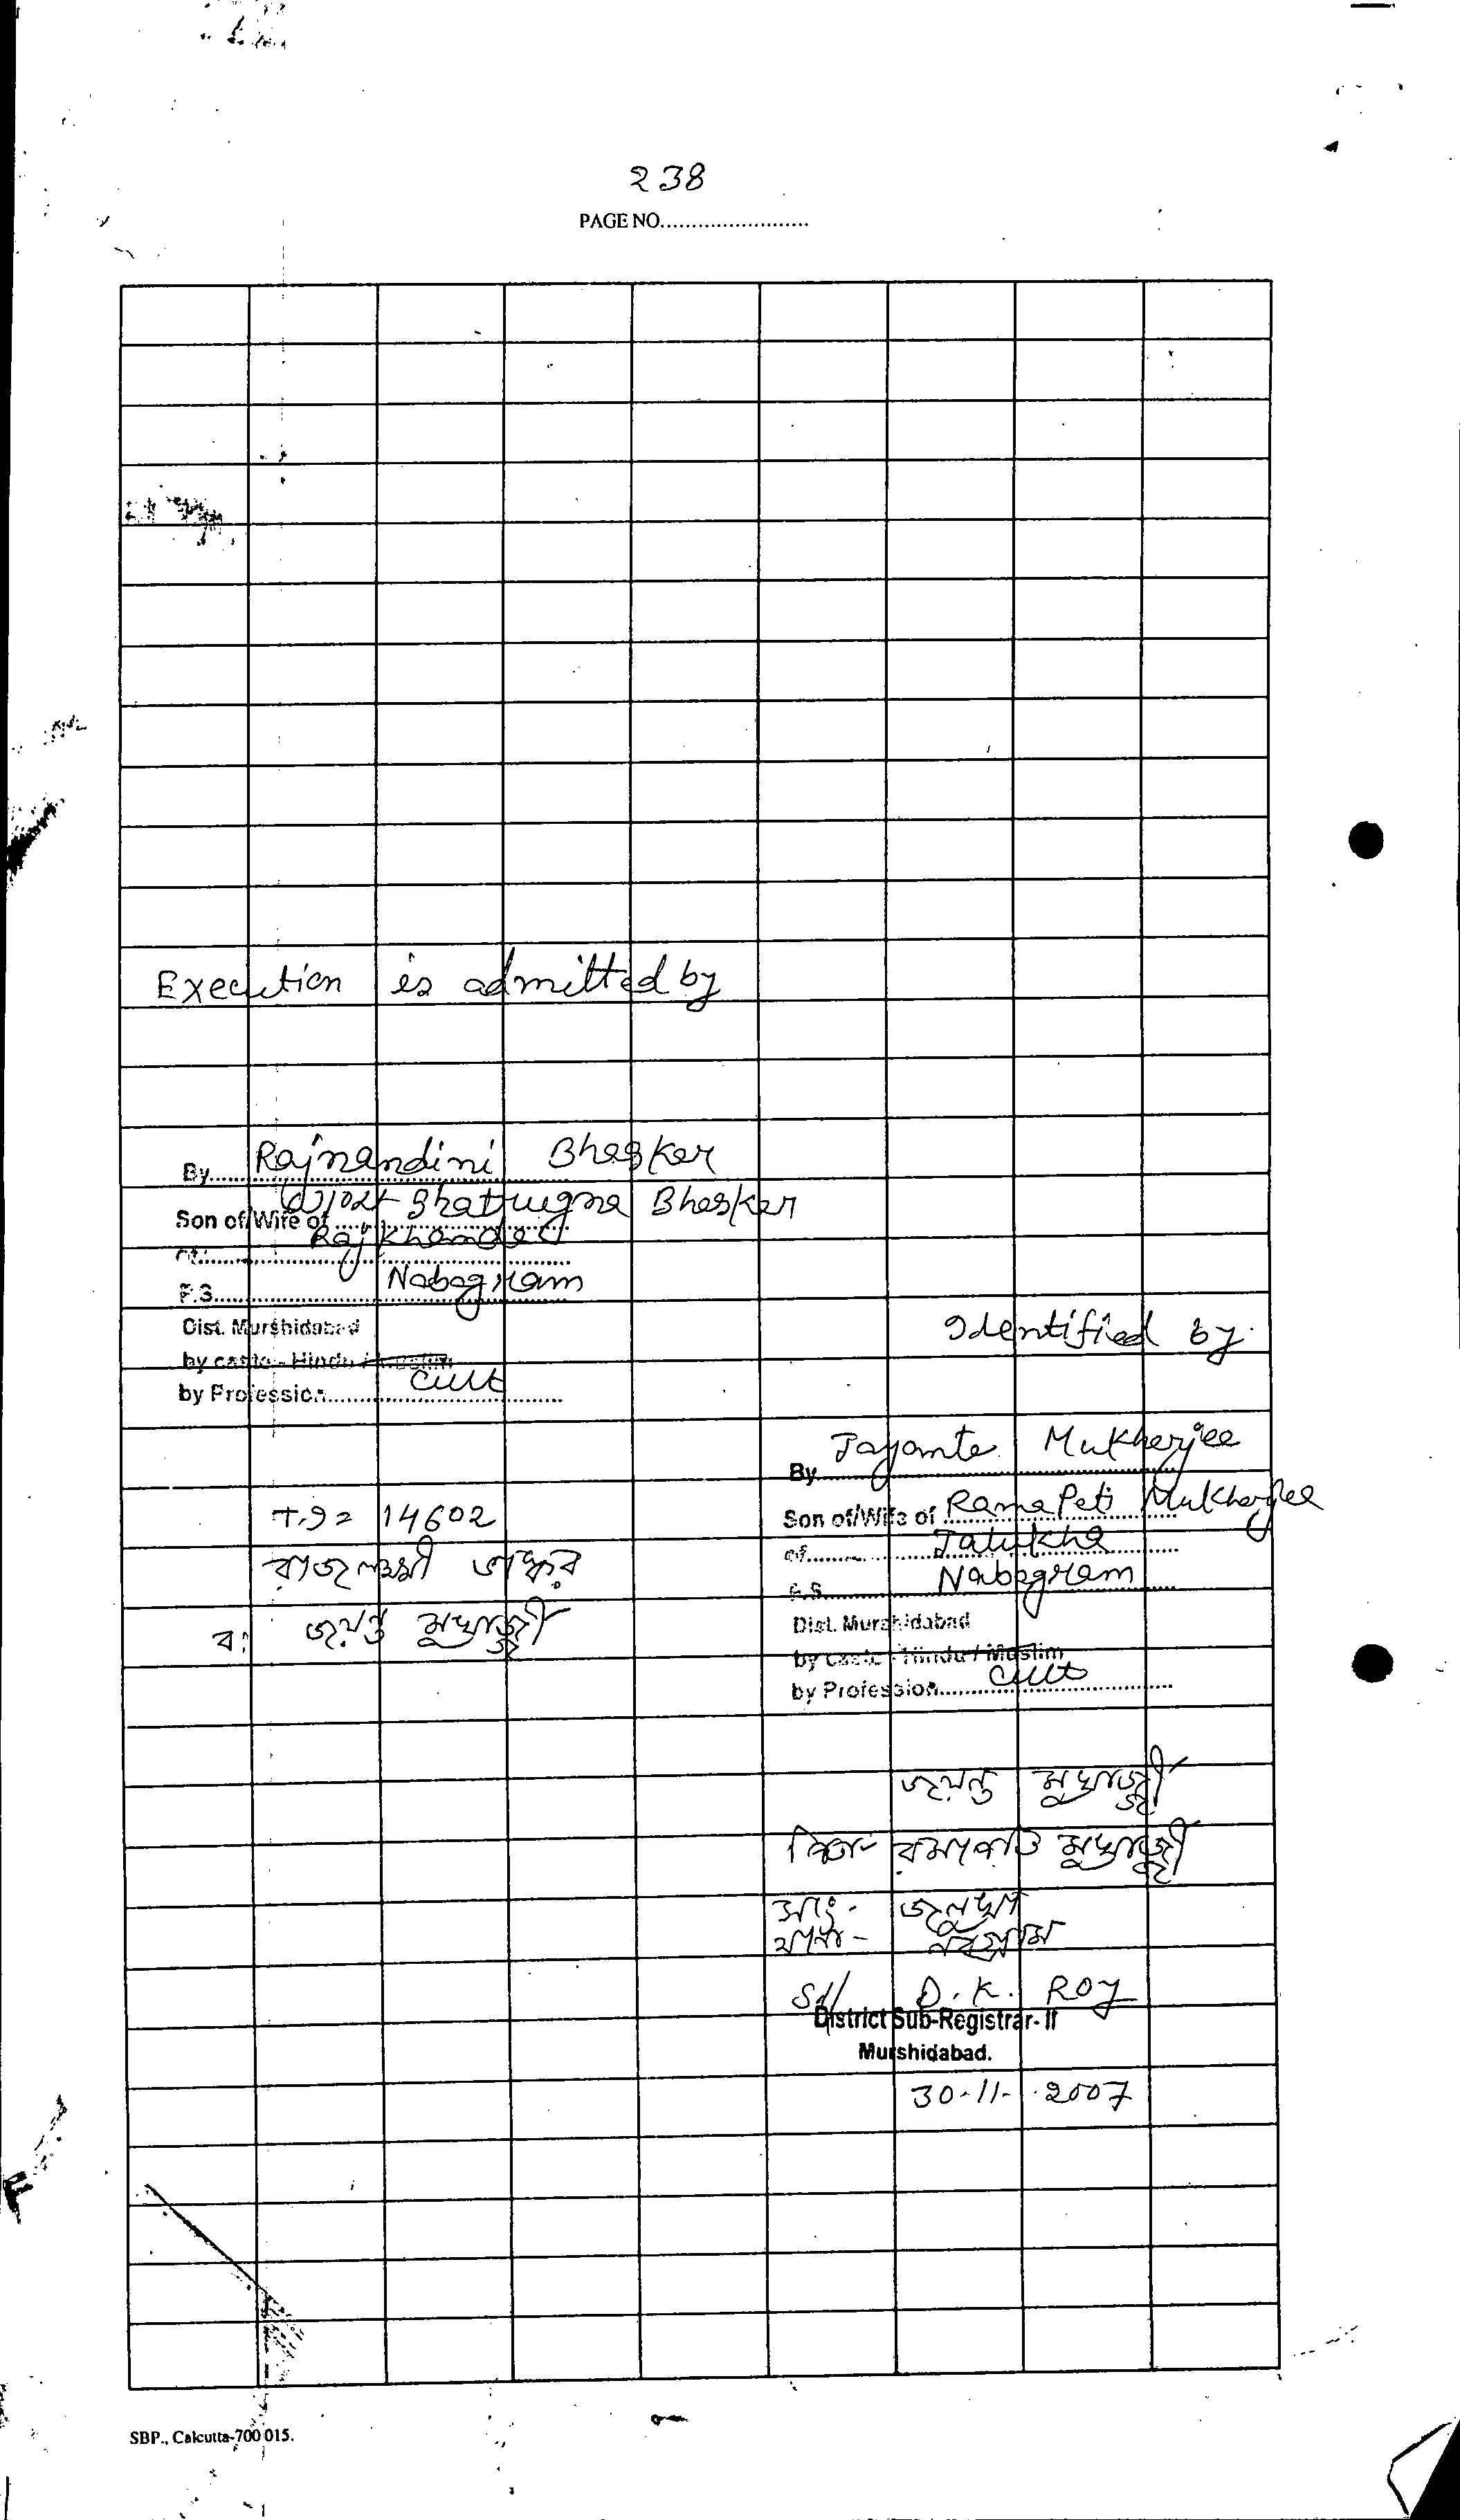 238
PAGE NO........................
Execution is admitted by
By Rajnandini Bhaskar
Son of/Wife of W/o Late Shattrugna Bhaskar
of Rajkhanda
P.S. Nabagram
Dist. Murshidabad
by caste - Hindu / Muslim
by Profession Cult
T.I = 14602
রাজলক্ষ্মী ভাস্কর
ব: জয়ন্ত মুখার্জ্জী
Identified by
By Jayanta Mukherjee
Son of/Wife of Ramapati Mukherjee
of Jalukha
P.S. Nabagram
Dist. Murshidabad
by caste - Hindu / Muslim
by Profession Cult
জয়ন্ত মুখার্জ্জী
পিতা- রমাপতি মুখার্জ্জী
সাং- জলুখা
থানা- নবগ্রাম
Sd/ D. K. Roy
District Sub-Registrar- II
Murshidabad.
30-11-2007
SBP., Calcutta-700 015.